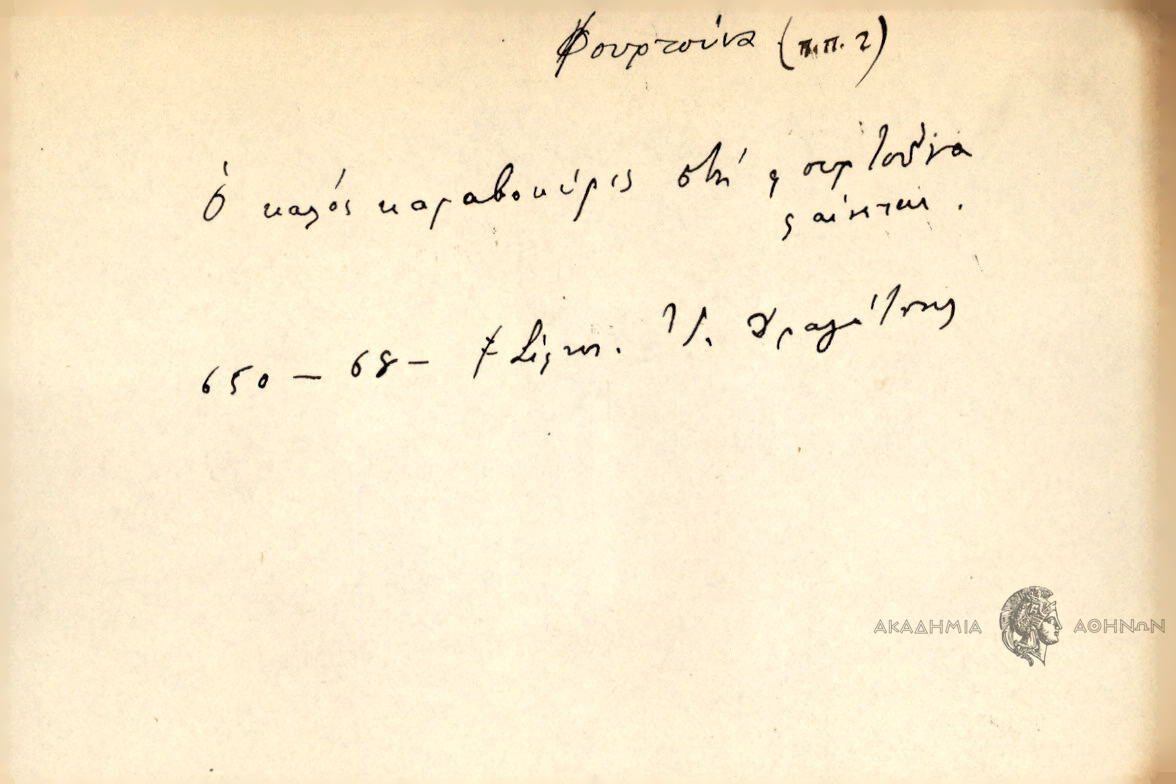 Φουρτούνα (π.π. 2)
Ὁ καλός καραβοκύρις στή φουρτούνα
φαίνεται.
650 – 68 – Σίφνος. Ἰ. Δραγάτσης
ΑΚΑΔΗΜΙΑ ΑΘΗΝΩΝ